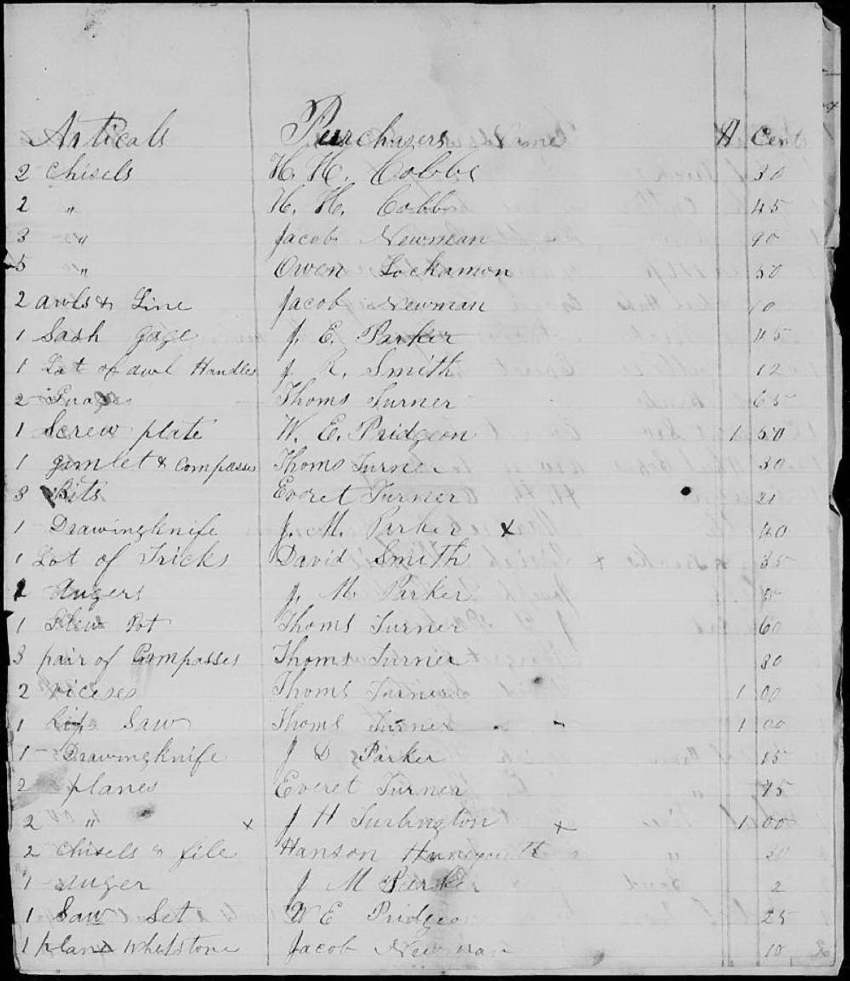 Articals Purchasers $ Cent
2 Chisels H. H. Cobbs 30
2 " H. H. Cobbs 45
3 " Jacob Newman 90
5 " Owen Lockamon 50
2 awls & Line Jacob Newman 10
1 Sash gage J. E. Parker 45
1 Lot of awl Handles J. R. Smith 12
2 Thoms Turner 65
1 Screw plate W. E. Pridgeon 1 50
1 gimlet & Compasses Thoms Turner 30
3 Bits Everet Turner 21
1 Drawingknife J. M. Parker x 40
1 Lot of Tricks David Smith 35
Augers J. M. Parker
1 Pot Thoms Turner 60
3 pair of Compasses Thoms Turner 80
2 viceses Thoms Turner 1 00
1 Saw Thoms Turner 1 00
1 Drawingknife J D Parker 15
2 planes Everet Turner
2 " x J H Turlington x 1 00
2 Chisels & file Hanson 30
1 auger J M Parker 2
1 Saw Set W E Pridgeo 25
1 plane Whetstone Jacob Newman 10